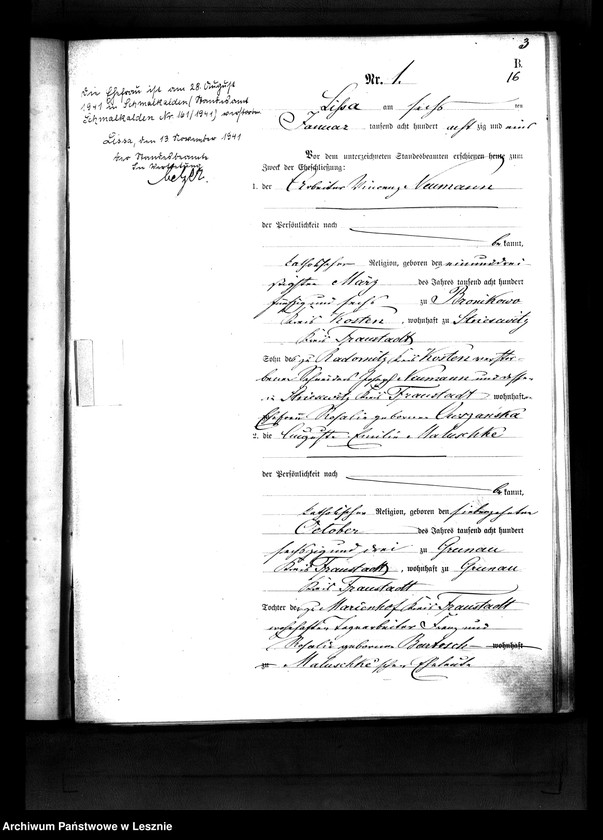 3
B.
16
Nr. 1.
Die Ehefrau ist am 28. August
1941 in Schmalkalden (Standesamt
Schmalkalden Nr. 161/1941) verstorben
Lissa, den 13 November 1941
Der Standesbeamte
In Vertretung
Lissa am sechs ten
Januar tausend acht hundert acht zig und eins
Vor dem unterzeichneten Standesbeamten erschienen heute zum
Zweck der Eheschließung:
1. der Arbeiter Vincenz Neumann
der Persönlichkeit nach
be kannt,
katholischer Religion, geboren den einunddrei
ßigsten März des Jahres tausend acht hundert
fünfzig und sechs zu Bronikowo
Kreis Kosten, wohnhaft zu Striesewitz
Kreis Fraustadt
Sohn des zu Radomitz Kreis Kosten verstor-
benen Schneiders Joseph Neumann und dessen
in Striesewitz Kreis Fraustadt wohnhaften
Ehefrau Rosalie geborene
2. die Auguste Emilie Maluschke
der Persönlichkeit nach
be kannt,
katholischer Religion, geboren den siebenzehnten
October des Jahres tausend acht hundert
sechszig und drei zu Grunau
Kreis Fraustadt, wohnhaft zu Grunau
Kreis Fraustadt
Tochter der zu Marienhof Kreis Fraustadt
wohnhaften Tagearbeiter Franz und
Rosalie geborenen Bartosch wohnhaft
zu Maluschke'schen Eheleute
Archiwum Państwowe w Lesznie